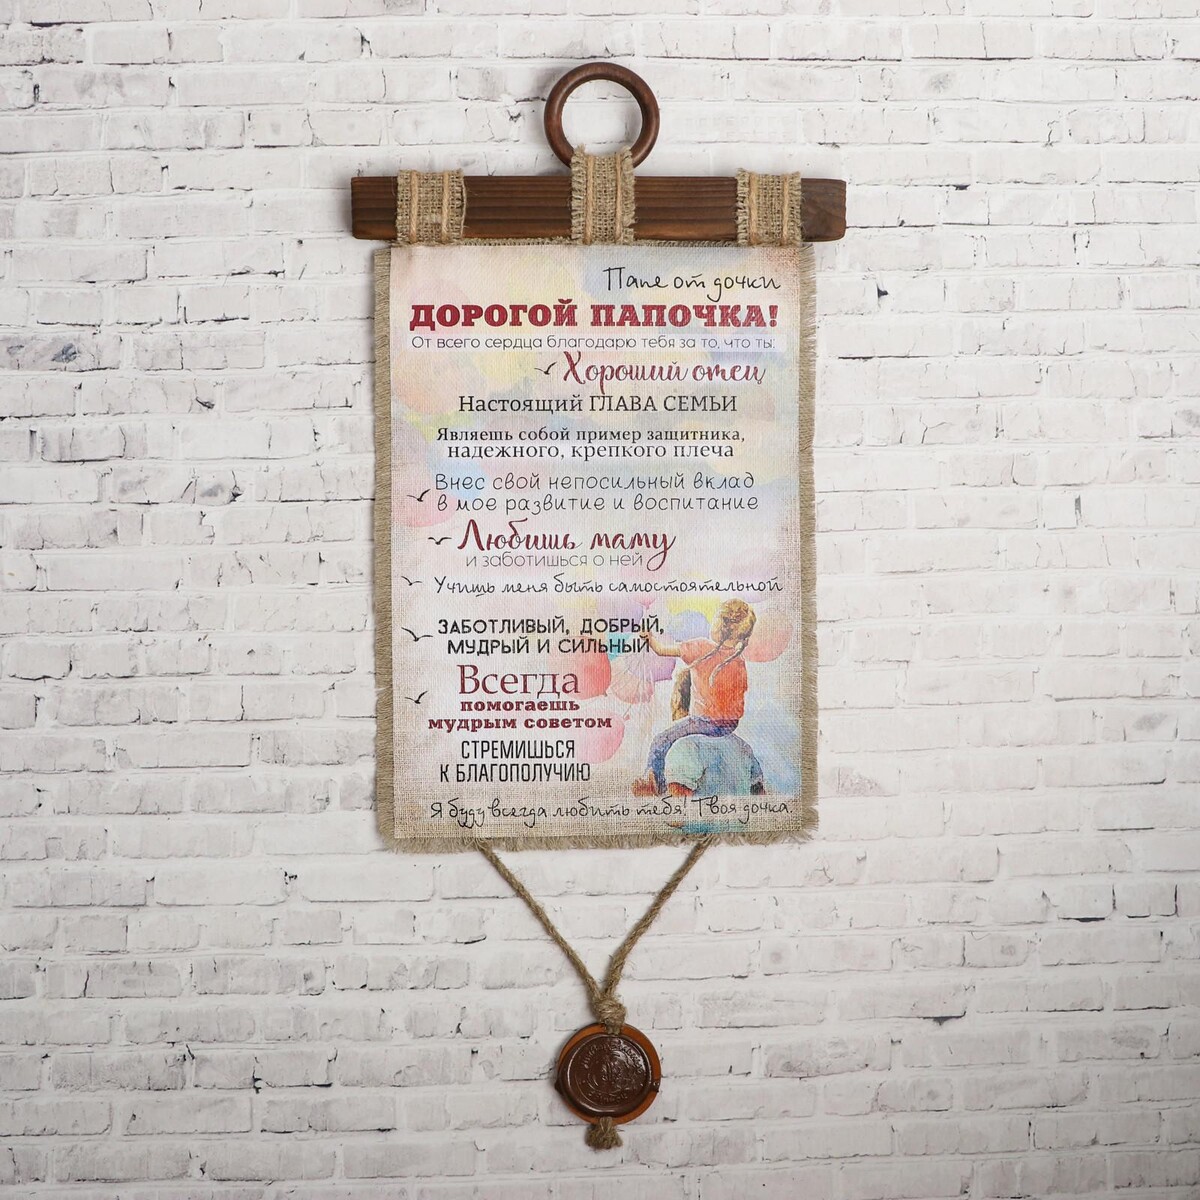 Папе от дочки
ДОРОГОЙ ПАПОЧКА!
От всего сердца благодарю тебя за то, что ты:
Хороший отец
Настоящий ГЛАВА СЕМЬИ
Являешь собой пример защитника,
надежного, крепкого плеча
Внес свой непосильный вклад
в мое развитие и воспитание
Любишь маму
и заботишься о ней
Учишь меня быть самостоятельной
ЗАБОТЛИВЫЙ, ДОБРЫЙ,
МУДРЫЙ И СИЛЬНЫЙ
Всегда
помогаешь
мудрым советом
СТРЕМИШЬСЯ
К БЛАГОПОЛУЧИЮ
Я буду всегда любить тебя! Твоя дочка.